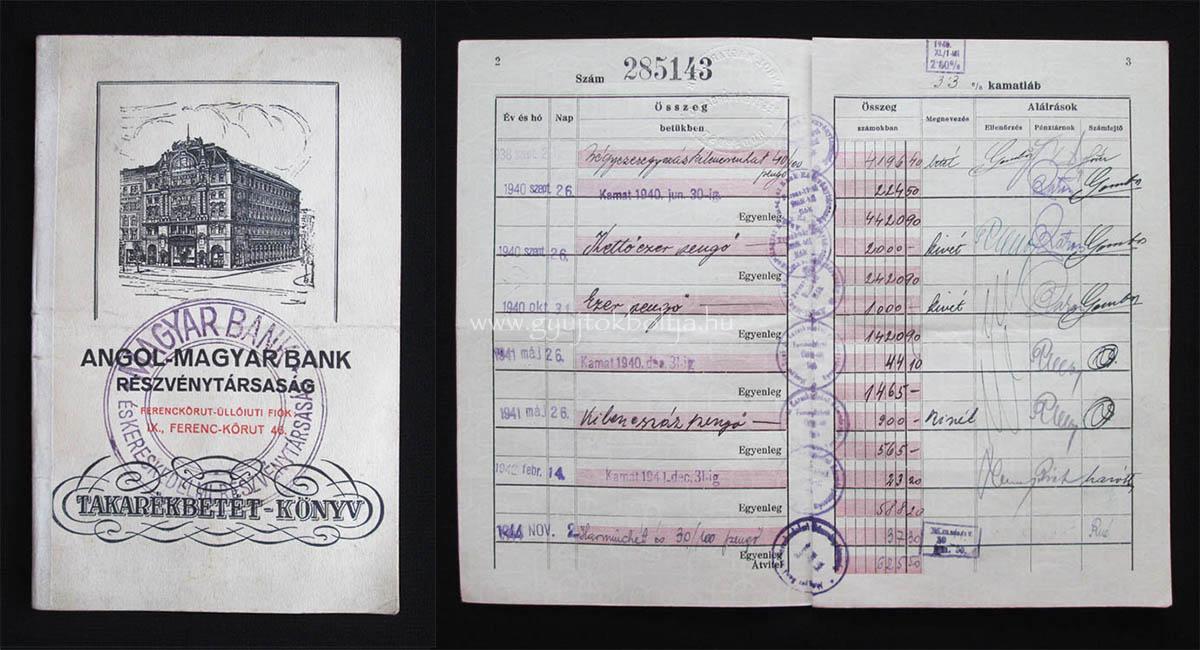 MAGYAR BANK
ANGOL-MAGYAR BANK
RÉSZVÉNYTÁRSASÁG
FERENCKÖRUT-ÜLLŐIUTI FIÓK
IX., FERENC-KÖRUT 46.
ÉS KERESKEDELMI RÉSZVÉNYTÁRSASÁG
TAKARÉKBETÉT-KÖNYV
2
Szám 285143
Év és hó Nap Összeg betükben
Négyezeregyszázkilencvenhat 40/100 pengő
1940 szept. 26. Kamat 1940. jun. 30-ig
Egyenleg
1940 szept. 26. Kettőezer pengő
Egyenleg
1940 okt. 31. Ezer pengő
Egyenleg
1941 máj 26. Kamat 1940. dec. 31-ig
Egyenleg
1941 máj 26. Kilencszáz pengő
Egyenleg
1942 febr. 14. Kamat 1941. dec. 31-ig
Egyenleg
1944 NOV. 2 Harminchét és 30/100 pengő
Egyenleg
Átvitel
3
1940.
% kamatláb
Összeg számokban Megnevezés Aláirások
Ellenőrzés Pénztárnok Számfejtő
4196 40 betét
224 50 Gombos
4420 90
2000 - kivét Gombos
2420 90
1000 - kivét Gombos
1420 90
44 10
1465 -
900 -
565 -
23 20
588 20
37 30
625 50
www.gyujtokboltja.hu